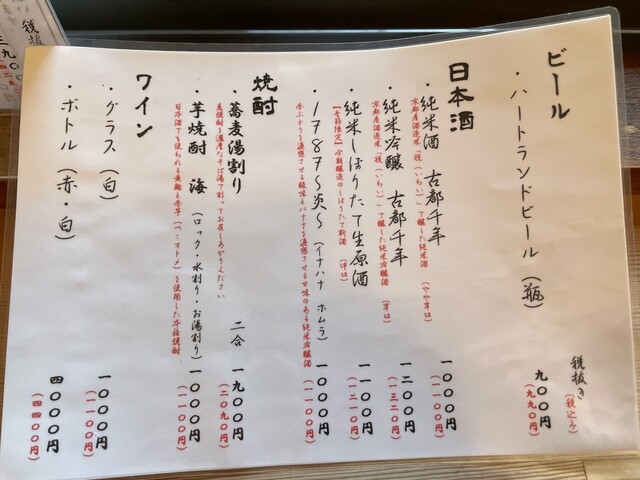 税抜き
(税込み)
ビール
・ハートランドビール (瓶)
九〇〇円
(九九〇円)
日本酒
・純米酒 古都千年
京都産酒造米「祝(いわい)」で醸した純米酒 (やや辛口)
一〇〇〇円
(一一〇〇円)
・純米吟醸 古都千年
京都産酒造米「祝(いわい)」で醸した純米吟醸酒 (辛口)
一二〇〇円
(一三二〇円)
・純米しぼりたて生原酒
【季節限定】今期醸造のしぼりたて新酒 (辛口)
一一〇〇円
(一二一〇円)
・1787〜炎〜 (イナハナ ホムラ)
一〇〇〇円
(一一〇〇円)
焼酎
・蕎麦湯割り 二合
麦焼酎を濃厚なそば湯で割ってお召しあがりください
一九〇〇円
(二〇九〇円)
・芋焼酎 海 (ロック・水割り・お湯割り)
一〇〇〇円
(一一〇〇円)
ワイン
・グラス (白)
一〇〇〇円
(一一〇〇円)
・ボトル (赤・白)
四〇〇〇円
(四四〇〇円)
税抜